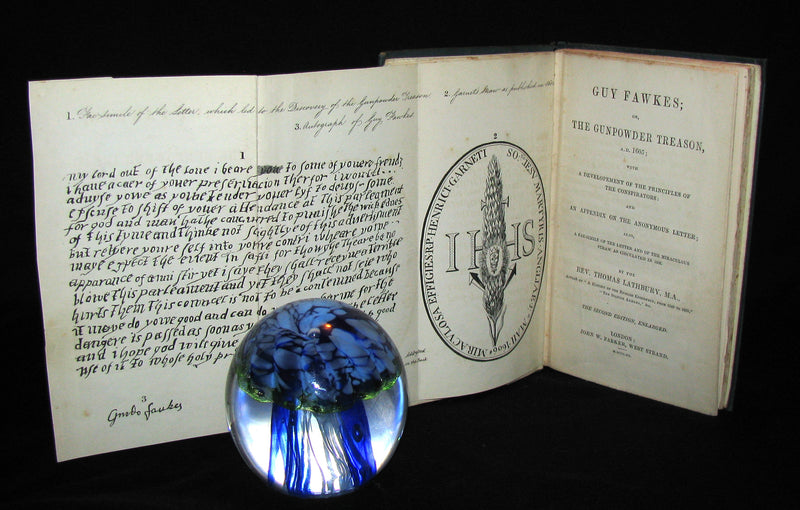 1. Fac-simile of the Letter, which led to the Discovery of the Gunpowder Treason
3. Autograph of Guy Fawkes
2. Garnets Straw as published in
1
my lord out of the love i beare you to some of youere frends
i have a caer of youer preservacion therfor i would
advyse yowe as yowe tender youer lyf to devys some
excuse to shift of youer attendance at this parleament
for god and man hathe concurred to punishe the wickednes
of this tyme and thinke not slightly of this advertisment
but retyere youre self into youre contri wheare yowe
maye expect the event in safti for thowghe theare be no
apparance of anni stir yet i saye they shall receyve a terrible
blowe this parleament and yet they shall not seie who
hurts them This cowncel is not to be contemned because
it maye do yowe good and can do
dangere is passed as soon as yo
and i hope god will give
use of it to whose holy pr
3
Guido Fawkes
2
MIRACVLOSA EFFIGIES R P HENRICI GARNETI SOCIET IESV MARTYRIS ANGLICANI
IHS
GUY FAWKES;
OR,
THE GUNPOWDER TREASON,
A.D. 1605;
WITH
A DEVELOPMENT OF THE PRINCIPLES OF
THE CONSPIRATORS;
AND
AN APPENDIX ON THE ANONYMOUS LETTER;
ALSO,
A FACSIMILE OF THE LETTER AND OF THE MIRACULOUS
STRAW, AS CIRCULATED IN 1606.
BY THE
REV. THOMAS LATHBURY, M.A.,
THE SECOND EDITION, ENLARGED.
LONDON:
JOHN W. PARKER, WEST STRAND.